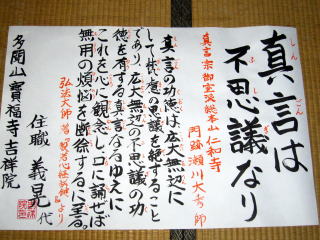 真言は
不思議なり
しんごん
ふしぎ
真言宗御室派総本山仁和寺
門跡 瀬川大秀師
真言の功徳は、広大無辺に
して、状態の思議を絶すること
であり、広大無辺の不思議の功
徳を有する真言なるゆえに
これを心に観念し、口に誦せば
無用の煩悩を断除するに至る。
弘法大師 著「般若心経秘鍵」より
多聞山寳福寺吉祥院
住職 義晃代